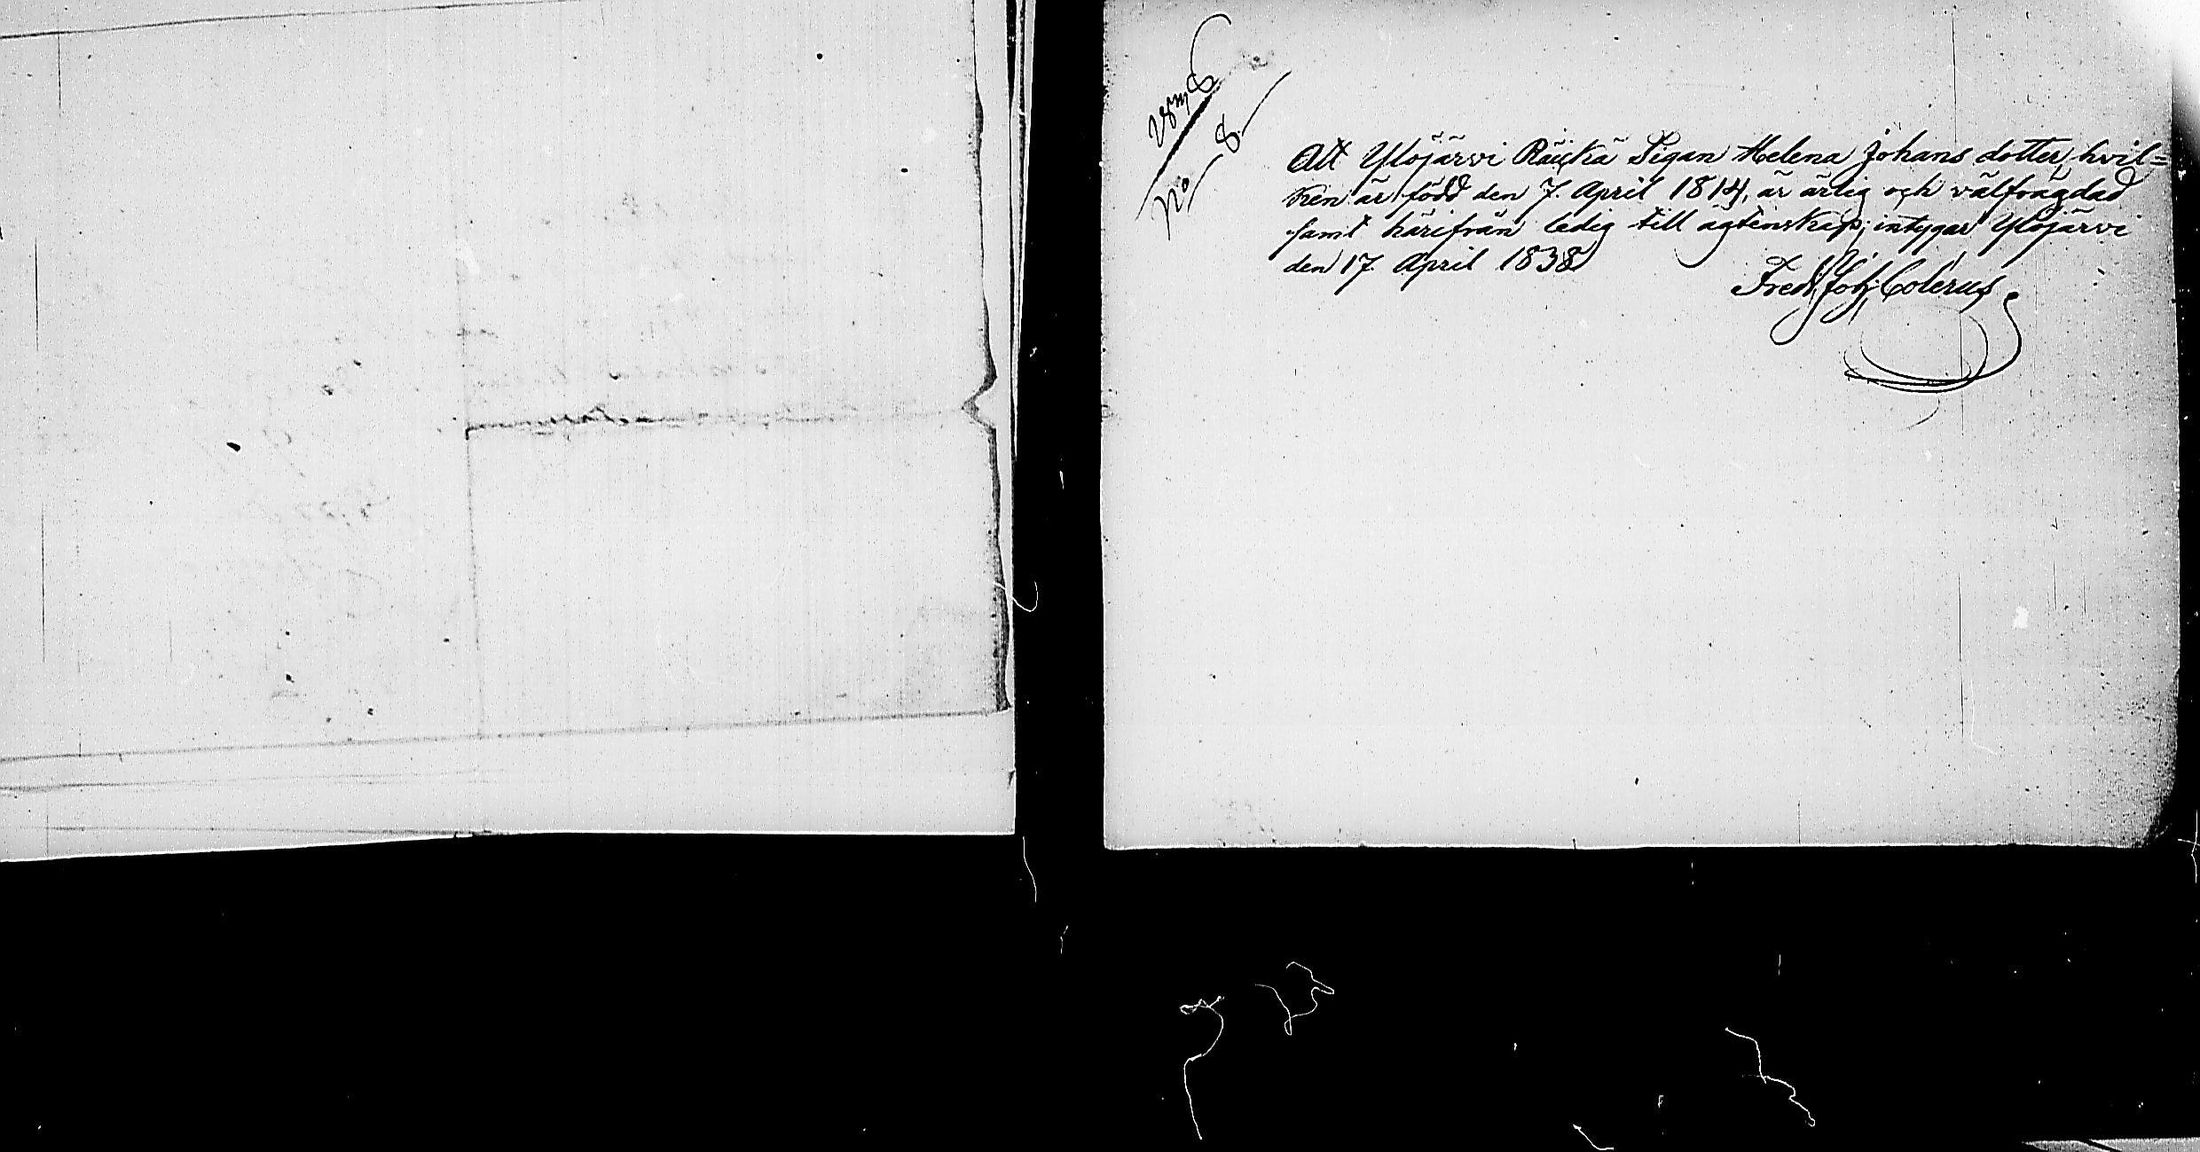 No 8.
Att Ylöjärvi Räickä Pigan Helena Johans dotter, hvil=
ken är född den 7. April 1814, är ärlig och välfrägdad
samt härifrån ledig till ägtenskap; intygar Ylöjärvi
den 17. April 1838
Fredr. Joh. Colerus